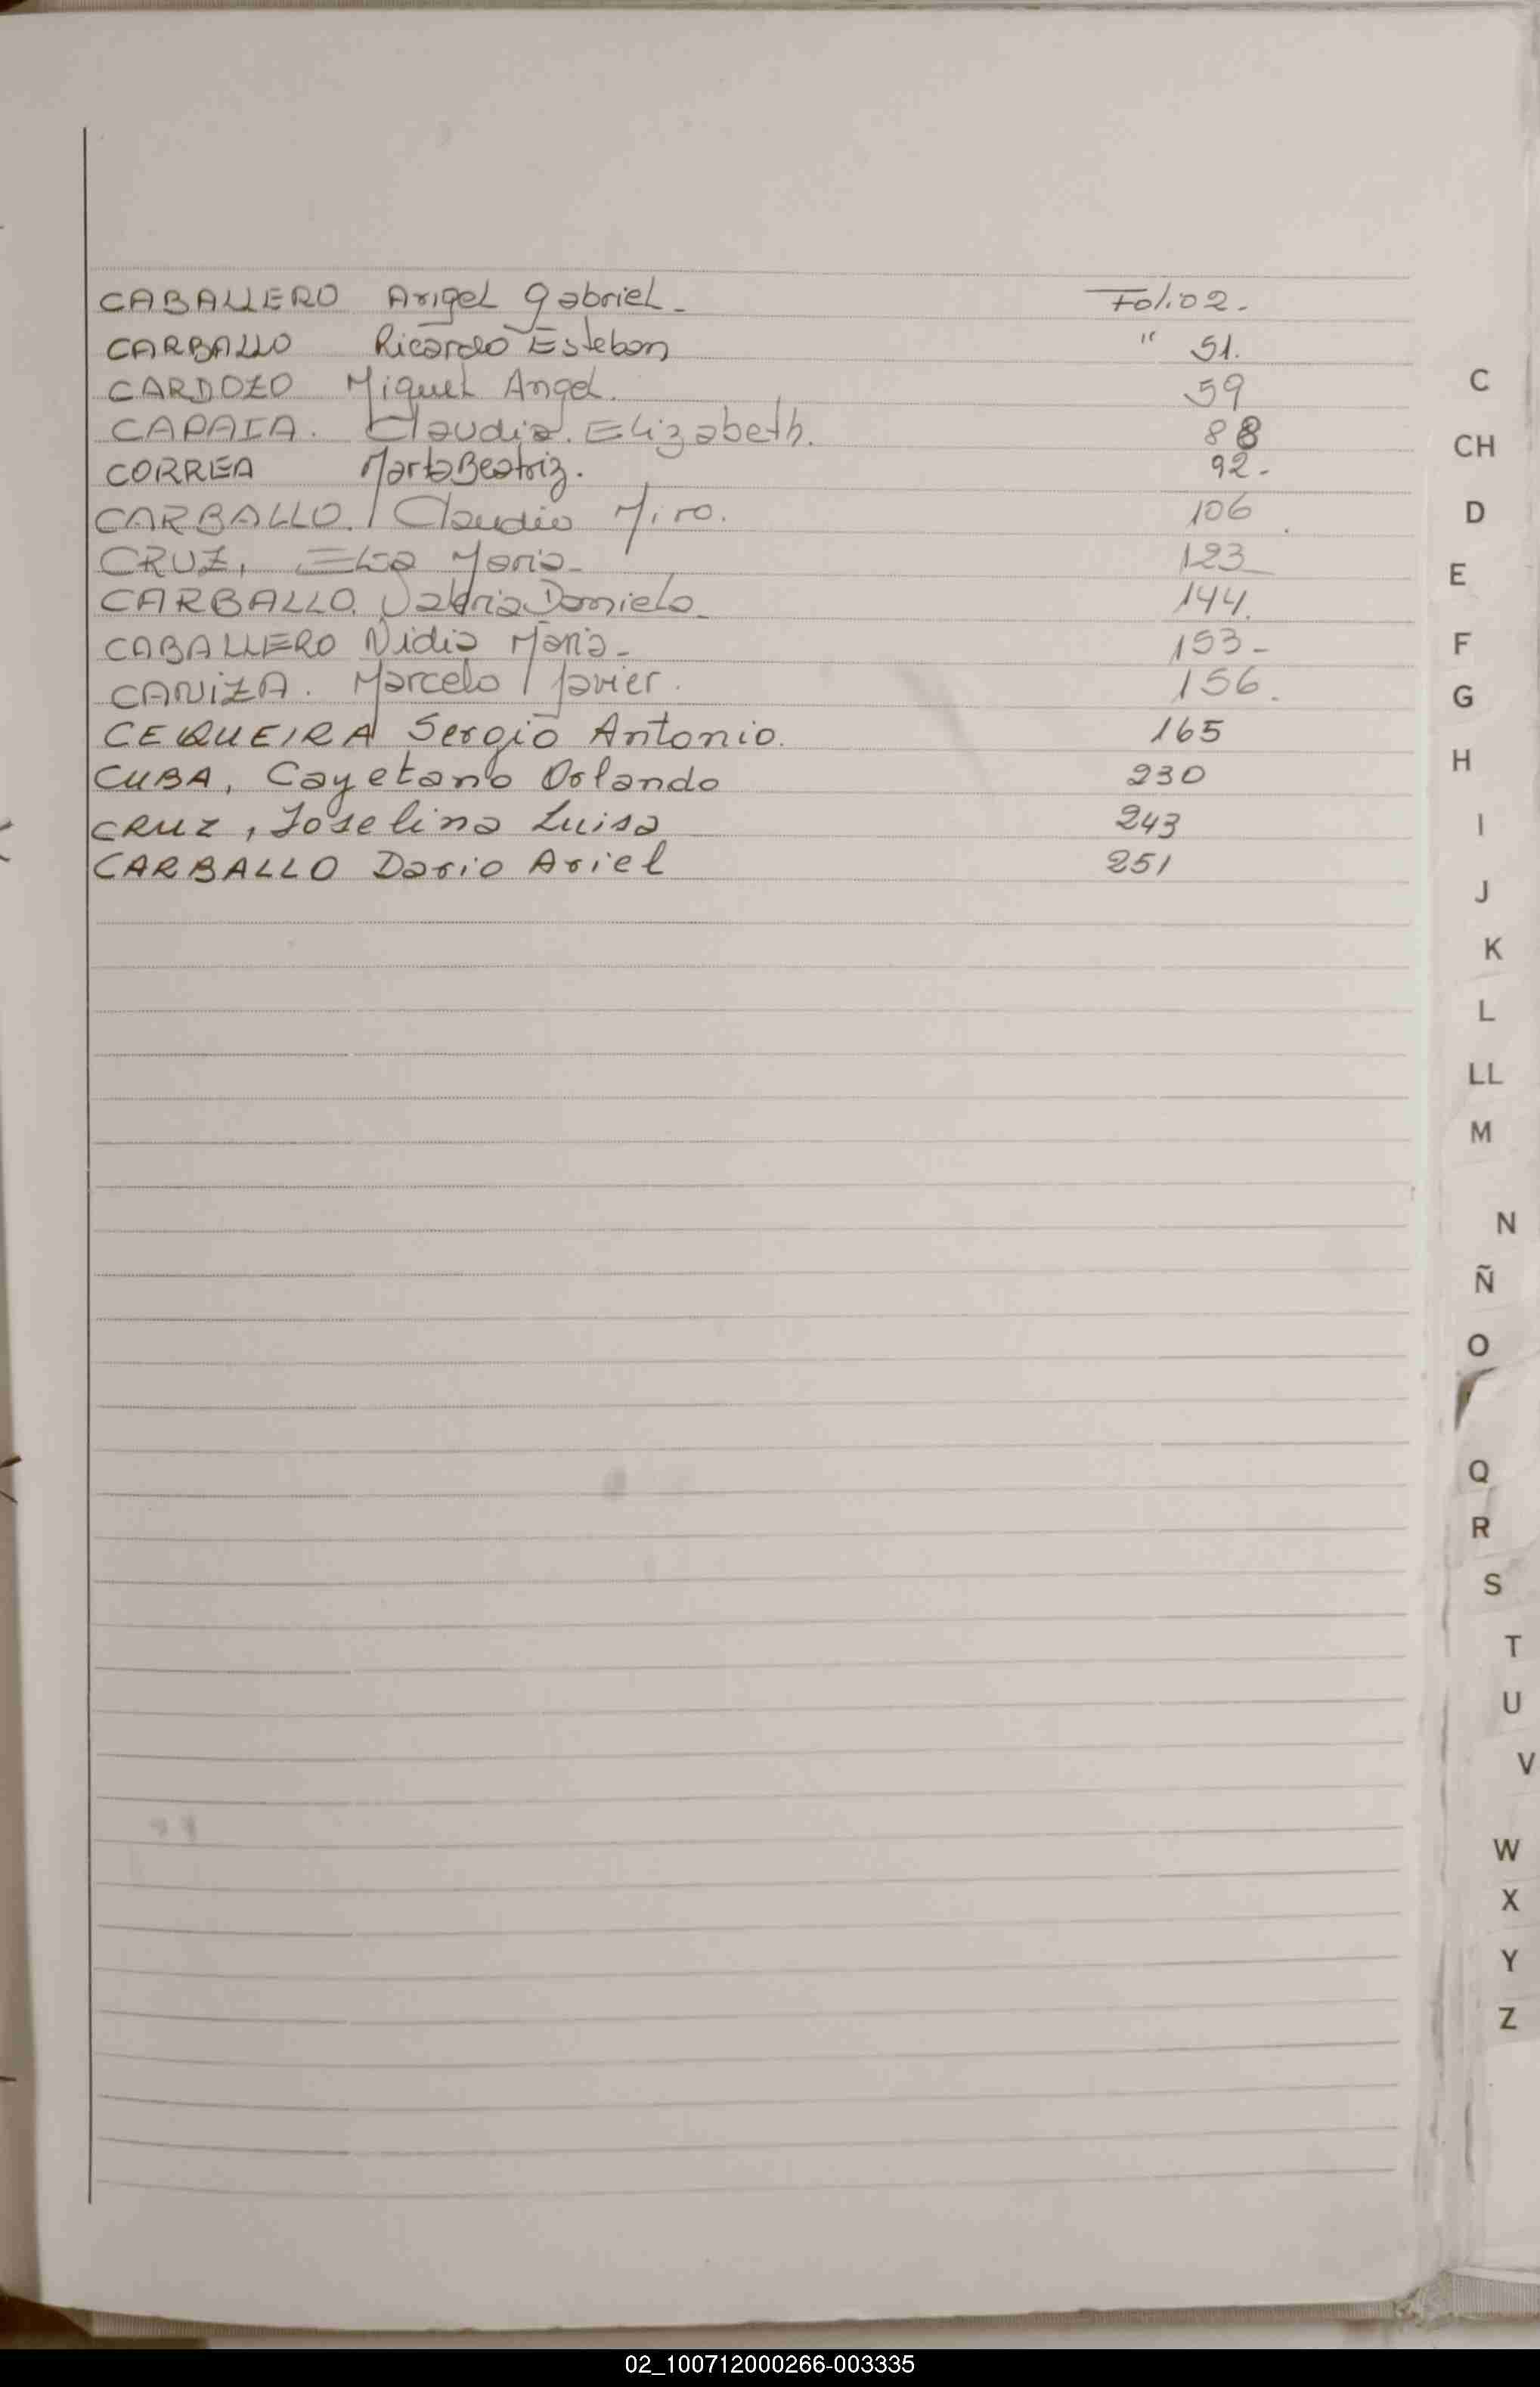 CABALLERO Angel Gabriel - Folio 2.
CARBALLO Ricardo Esteban " 51.
CARDOZO Miguel Angel. 59
CAPAIA. Claudia. Elizabeth. 88
CORREA Marta Beatriz. 92-
CARBALLO. Claudio Miro. 106
CRUZ, Elsa Maria- 123
CARBALLO. Valeria Daniela- 144.
CABALLERO Nidia Maria- 153-
CANIZA. Marcelo Javier. 156.
CEQUEIRA Sergio Antonio. 165
CUBA, Cayetano Orlando 230
CRUZ, Joselina Luisa 243
CARBALLO Dario Ariel 251
C
CH
D
E
F
G
H
I
J
K
L
LL
M
N
Ñ
O
Q
R
S
T
U
V
W
X
Y
Z
02_100712000266-003335